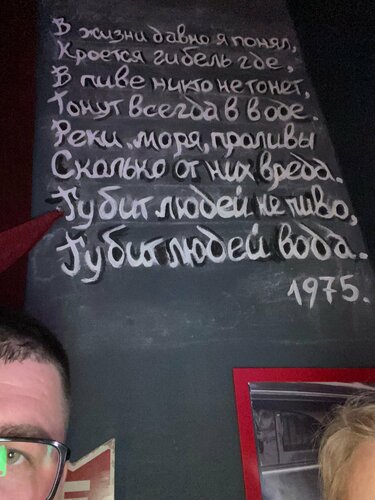 В жизни давно я понял,
Кроется гибель где,
В пиве никто не тонет,
Тонут всегда в воде.
Реки, моря, проливы
Сколько от них вреда.
Губит людей не пиво,
Губит людей вода.
1975.